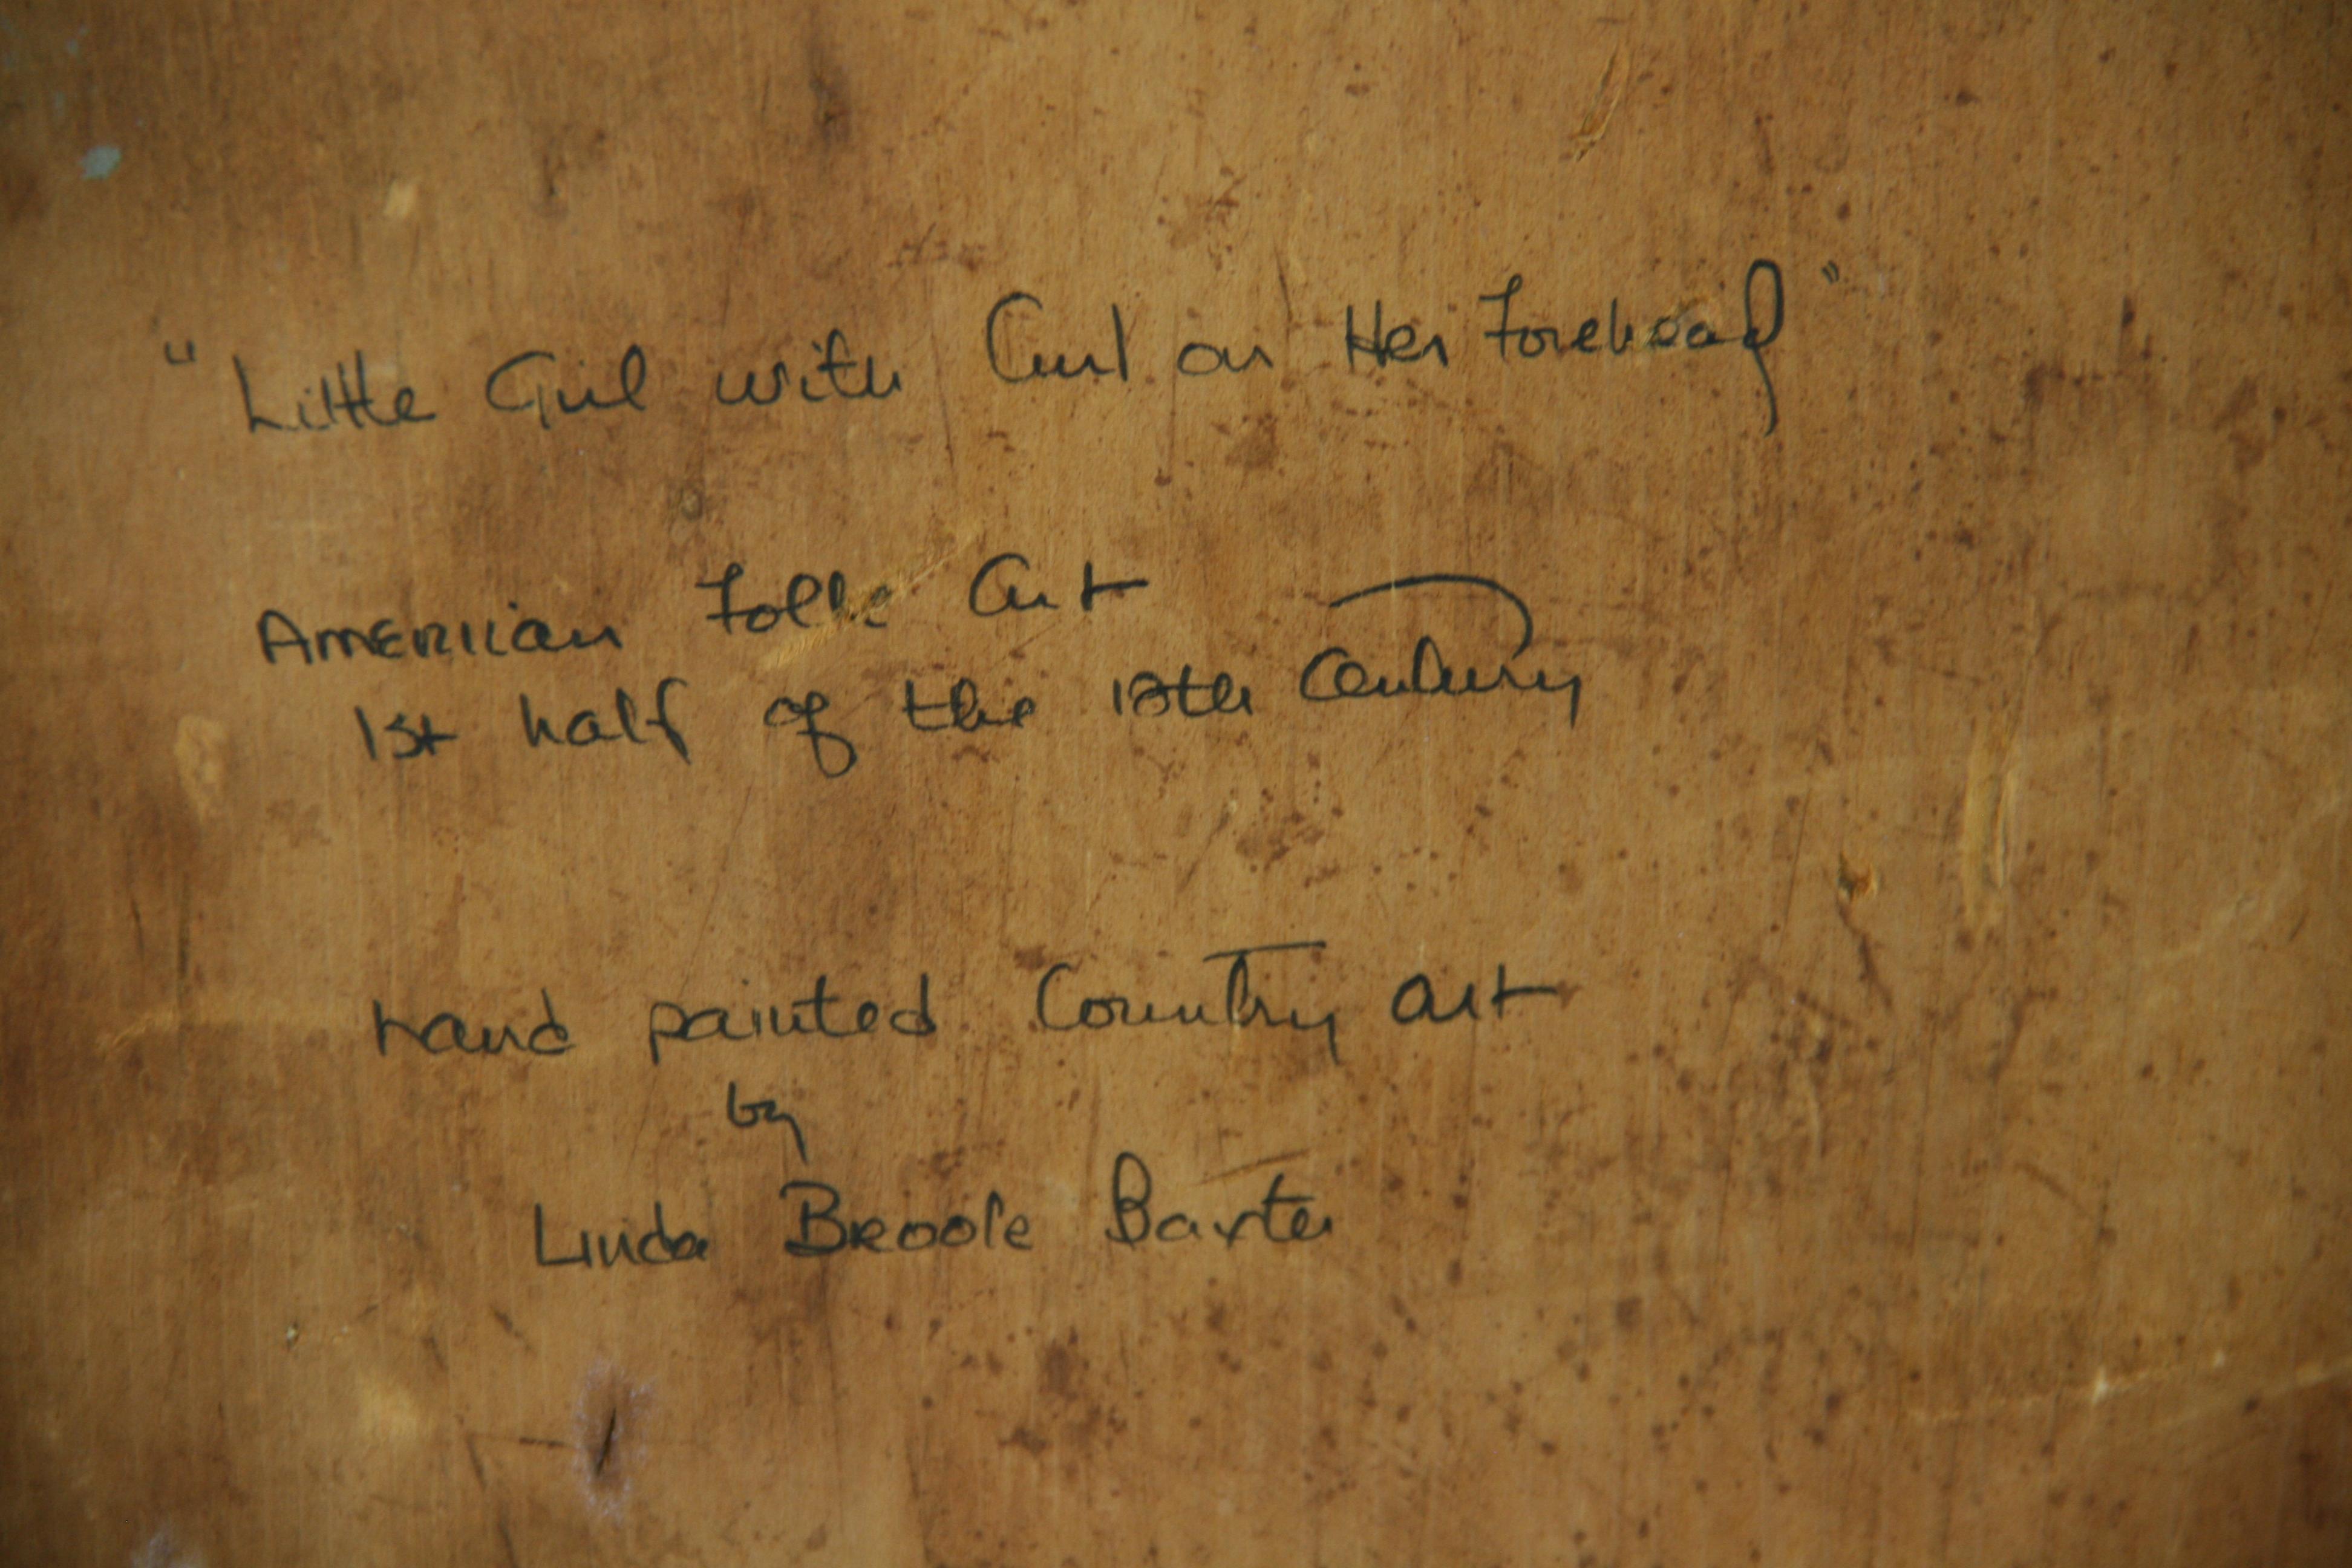 "Little Girl with Curl on Her Forehead"
American Folk Art
1st half of the 18th Century
hand painted Country art
by
Linda Brooke Baxter